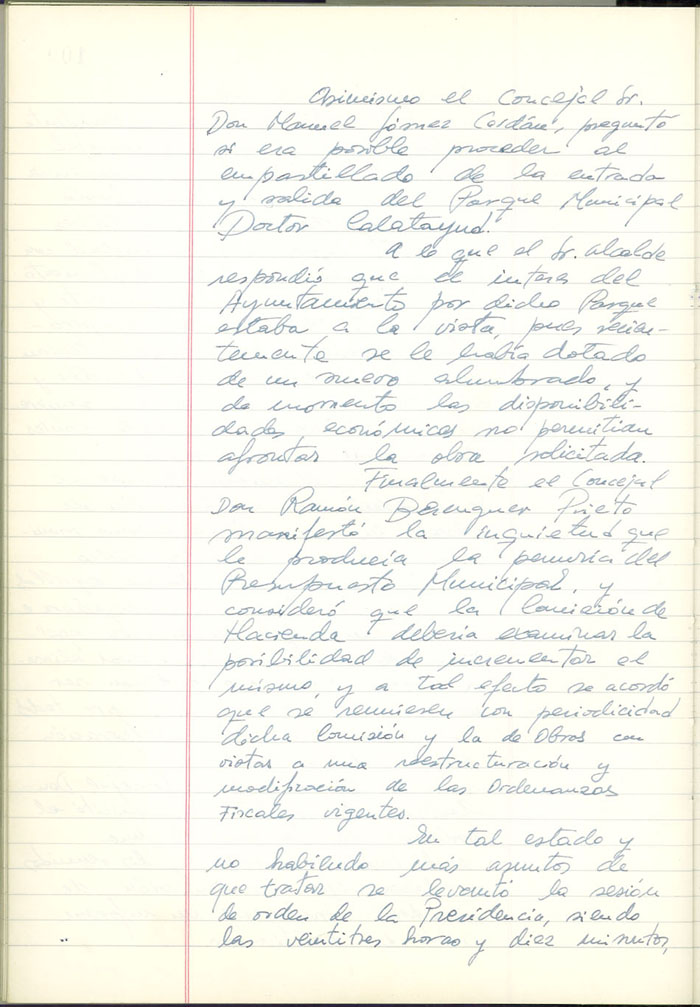 Asimismo el Concejal Sr.
Don Manuel Gómez Cordán, preguntó
si era posible proceder al
empastillado de la entrada
y salida del Parque Municipal
Doctor Calatayud.
A lo que el Sr. Alcalde
respondió que el interes del
Ayuntamiento por dicho Parque
estaba a la vista, pues recien-
temente se le había dotado
de un nuevo alumbrado, y
de momento las disponibili-
dades económicas no permitian
afrontar la obra solicitada.
Finalmente el Concejal
Don Ramón Berenguer Prieto
manifestó la inquietud que
le producia la penuria del
Presupuesto Municipal, y
consideró que la Comisión de
Hacienda deberia examinar la
posibilidad de incrementar el
mismo, y a tal efecto se acordó
que se reuniesen con periodicidad
dicha Comisión y la de Obras con
vistas a una reestructuración y
modificación de las Ordenanzas
Fiscales vigentes.
En tal estado y
no habiendo más asuntos de
que tratar se levantó la sesión
de orden de la Presidencia, siendo
las veintitres horas y diez minutos,